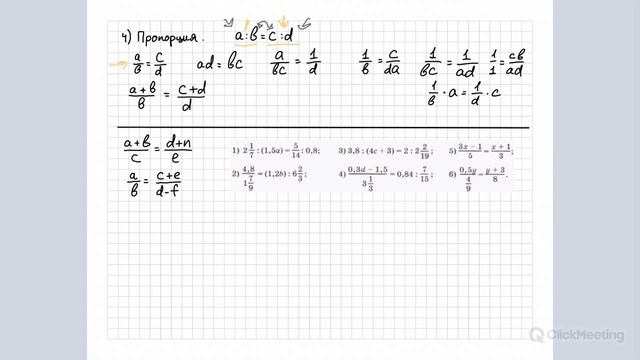 4) Пропорция. a:b=c:d
a/b = c/d   ad = bc   a/bc = 1/d   1/b = c/da   1/bc = 1/ad   1/1 = cb/ad
(a+b)/b = (c+d)/d   1/b · a = 1/d · c
(a+b)/c = (d+n)/e
a/b = (c+e)/(d-f)
1) 2 1/7 : (1,5a) = 5/14 : 0,8;   3) 3,8 : (4c + 3) = 2 : 2 2/19;   5) (3x − 1)/5 = (x + 1)/3;
2) 4,8/(1 7/9) = (1,2b) : 6 2/3;   4) (0,3d − 1,5)/(3 1/3) = 0,84 : 7/15;   6) 0,5y/(4/9) = (y + 3)/8.
ClickMeeting